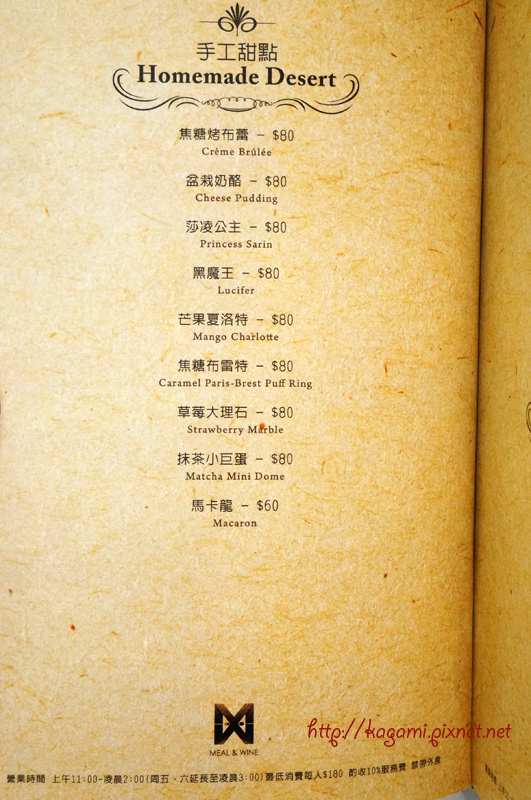 手工甜點
Homemade Desert
焦糖烤布蕾 – $80
Crème Brûlée
盆栽奶酪 – $80
Cheese Pudding
莎凌公主 – $80
Princess Sarin
黑魔王 – $80
Lucifer
芒果夏洛特 – $80
Mango Charlotte
焦糖布雷特 – $80
Caramel Paris-Brest Puff Ring
草莓大理石 – $80
Strawberry Marble
抹茶小巨蛋 – $80
Matcha Mini Dome
馬卡龍 – $60
Macaron
MEAL & WINE
http://kagami.pixnet.net
營業時間 上午11:00-凌晨2:00(周五、六延長至凌晨3:00)最低消費每人$180 酌收10%服務費 禁帶外食